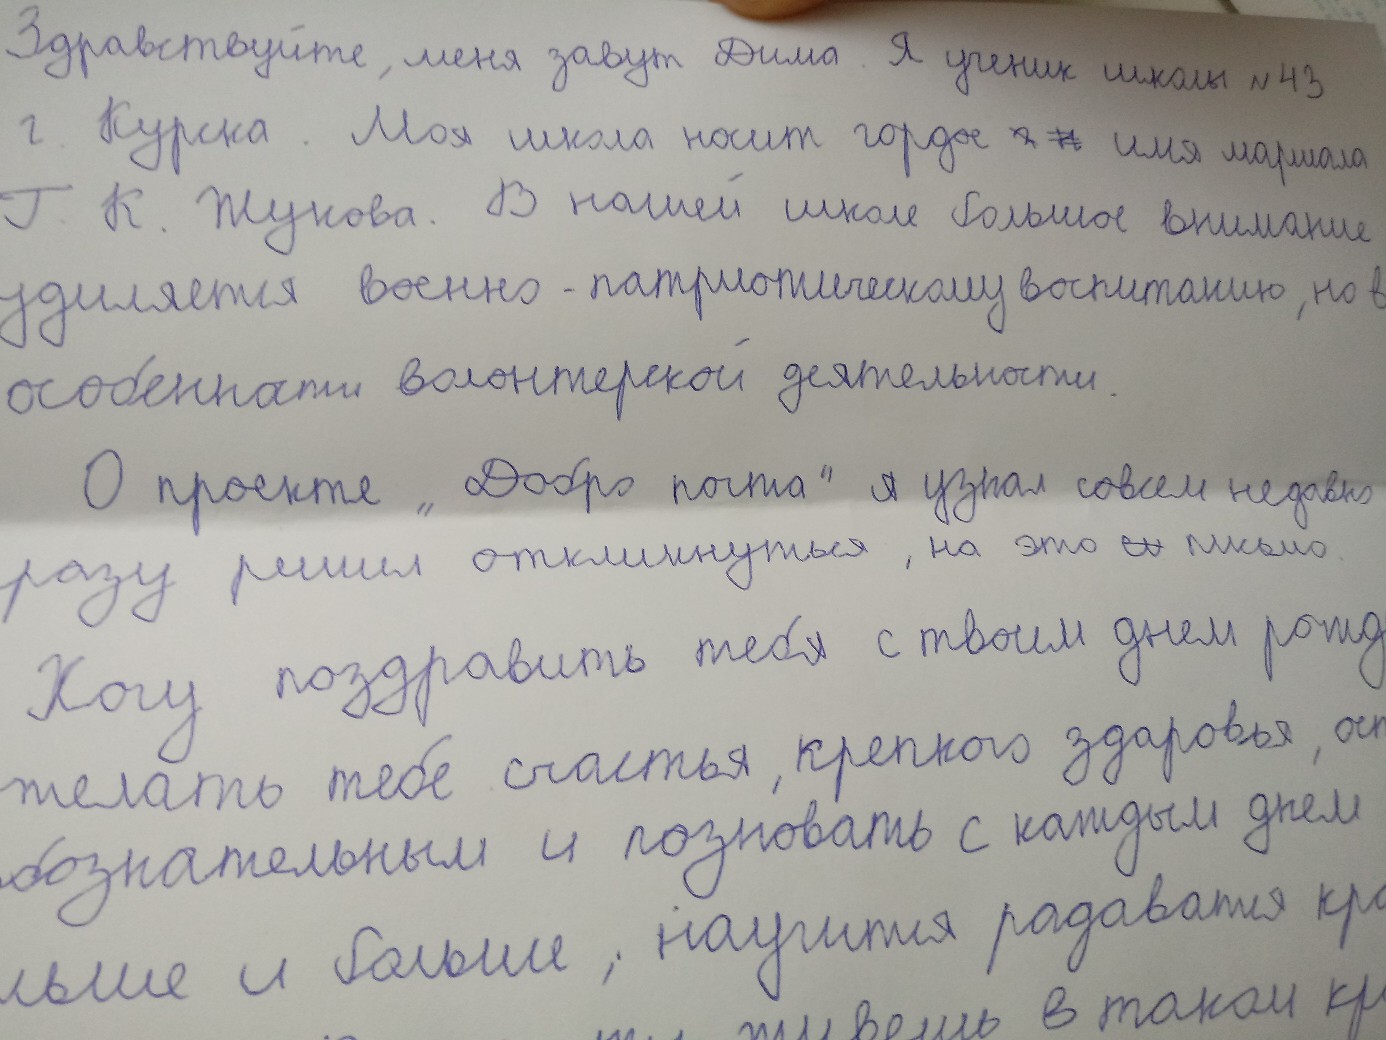 Здравствуйте, меня завут Дима. Я ученик школы №43
г. Курска. Моя школа носит гордое имя маршала
Г. К. Жукова. В нашей школе большое внимание
удиляется военно-патриотическому воспитанию, но в
особеннати волонтерской деятельности.
О проекте „Добро почта" я узнал совсем недавно
разу решил откликнуться, на это письмо.
Хочу поздравить тебя с твоим днем рожд
желать тебе счастья, крепкого здаровья, ост
бознательным и позновать с каждым днем
льше и больше, научится радаватся кра
ты живешь в таком кра